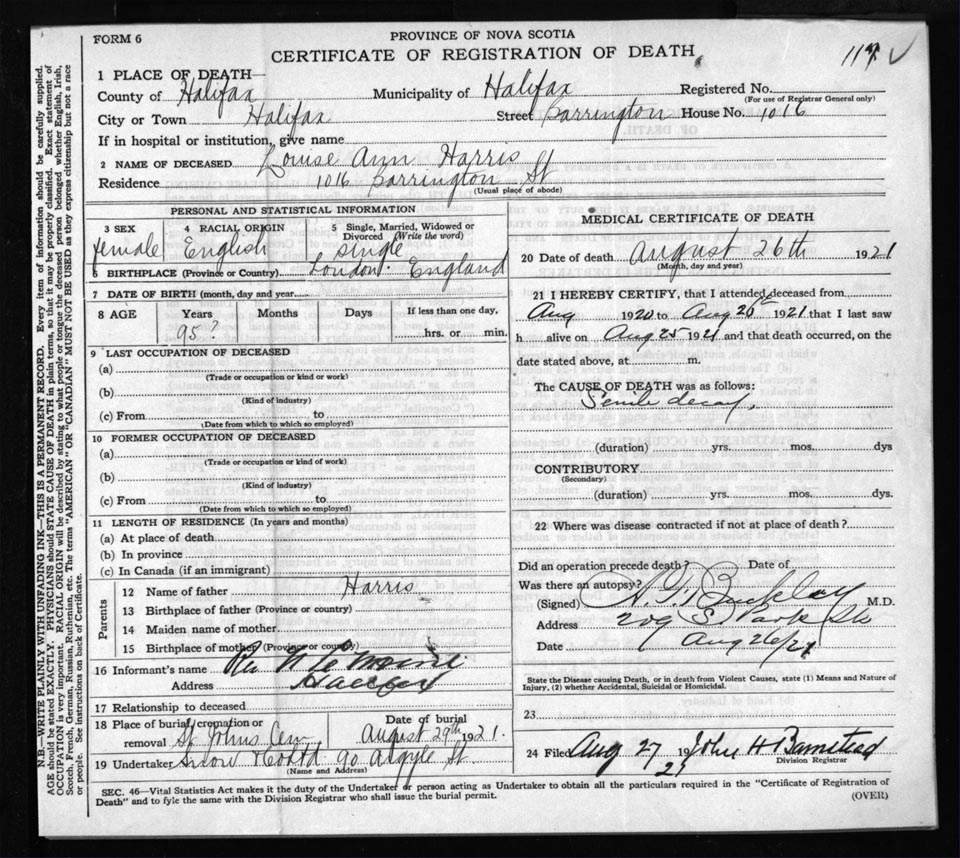 FORM 6
PROVINCE OF NOVA SCOTIA
CERTIFICATE OF REGISTRATION OF DEATH
117 ✓
1 PLACE OF DEATH—
County of Halifax Municipality of Halifax Registered No.
(For use of Registrar General only)
City or Town Halifax Street Barrington House No. 1016
If in hospital or institution, give name
2 NAME OF DECEASED Louise Ann Harris
Residence 1016 Barrington St
(Usual place of abode)
PERSONAL AND STATISTICAL INFORMATION
3 SEX 4 RACIAL ORIGIN 5 Single, Married, Widowed or
Divorced (Write the word)
female English single
6 BIRTHPLACE (Province or Country) London. England
7 DATE OF BIRTH (month, day and year)
8 AGE Years Months Days If less than one day,
95? hrs. or min.
9 LAST OCCUPATION OF DECEASED
(a)
(Trade or occupation or kind or work)
(b)
(Kind of industry)
(c) From to
(Date from which to which so employed)
10 FORMER OCCUPATION OF DECEASED
(a)
(Trade or occupation or kind of work)
(b)
(Kind of industry)
(c) From to
(Date from which to which so employed)
11 LENGTH OF RESIDENCE (In years and months)
(a) At place of death
(b) In province
(c) In Canada (if an immigrant)
Parents
12 Name of father Harris
13 Birthplace of father (Province or country)
14 Maiden name of mother
15 Birthplace of mother (Province or country)
16 Informant's name
Address Halifax
17 Relationship to deceased
18 Place of burial, cremation or Date of burial
removal St Johns Cem August 29th 1921.
19 Undertaker Snow & Co Ltd 90 Argyle St
(Name and Address)
MEDICAL CERTIFICATE OF DEATH
20 Date of death August 26th 1921
(Month, day and year)
21 I HEREBY CERTIFY, that I attended deceased from
Aug 1920 to Aug 26th 1921 that I last saw
h alive on Aug 25 1921 and that death occurred, on the
date stated above, at m.
The CAUSE OF DEATH was as follows:
Senile decay,
(duration) yrs. mos. dys
CONTRIBUTORY
(Secondary)
(duration) yrs. mos. dys.
22 Where was disease contracted if not at place of death?
Did an operation precede death? Date of
Was there an autopsy?
(Signed) Buckley M.D.
Address 209 S Park St
Date Aug 26/21
State the Disease causing Death, or in death from Violent Causes, state (1) Means and Nature of
Injury, (2) whether Accidental, Suicidal or Homicidal.
23
24 Filed Aug 27 19 John H Barnstead
21 Division Registrar
SEC. 46—Vital Statistics Act makes it the duty of the Undertaker or person acting as Undertaker to obtain all the particulars required in the "Certificate of Registration of
Death" and to fyle the same with the Division Registrar who shall issue the burial permit.
(OVER)
N.B.—WRITE PLAINLY WITH UNFADING INK—THIS IS A PERMANENT RECORD. Every item of information should be carefully supplied.
AGE should be stated EXACTLY. PHYSICIANS should STATE CAUSE OF DEATH in plain terms, so that it may be properly classified. Exact statement of
OCCUPATION is very important. RACIAL ORIGIN will be described by stating to what people or tongue the deceased person belonged, whether English, Irish,
Scotch, French, German, Russian, Ruthenian, etc. The terms "AMERICAN" OR "CANADIAN" MUST NOT BE USED as they express citizenship but not a race
or people. See instructions on back of Certificate.